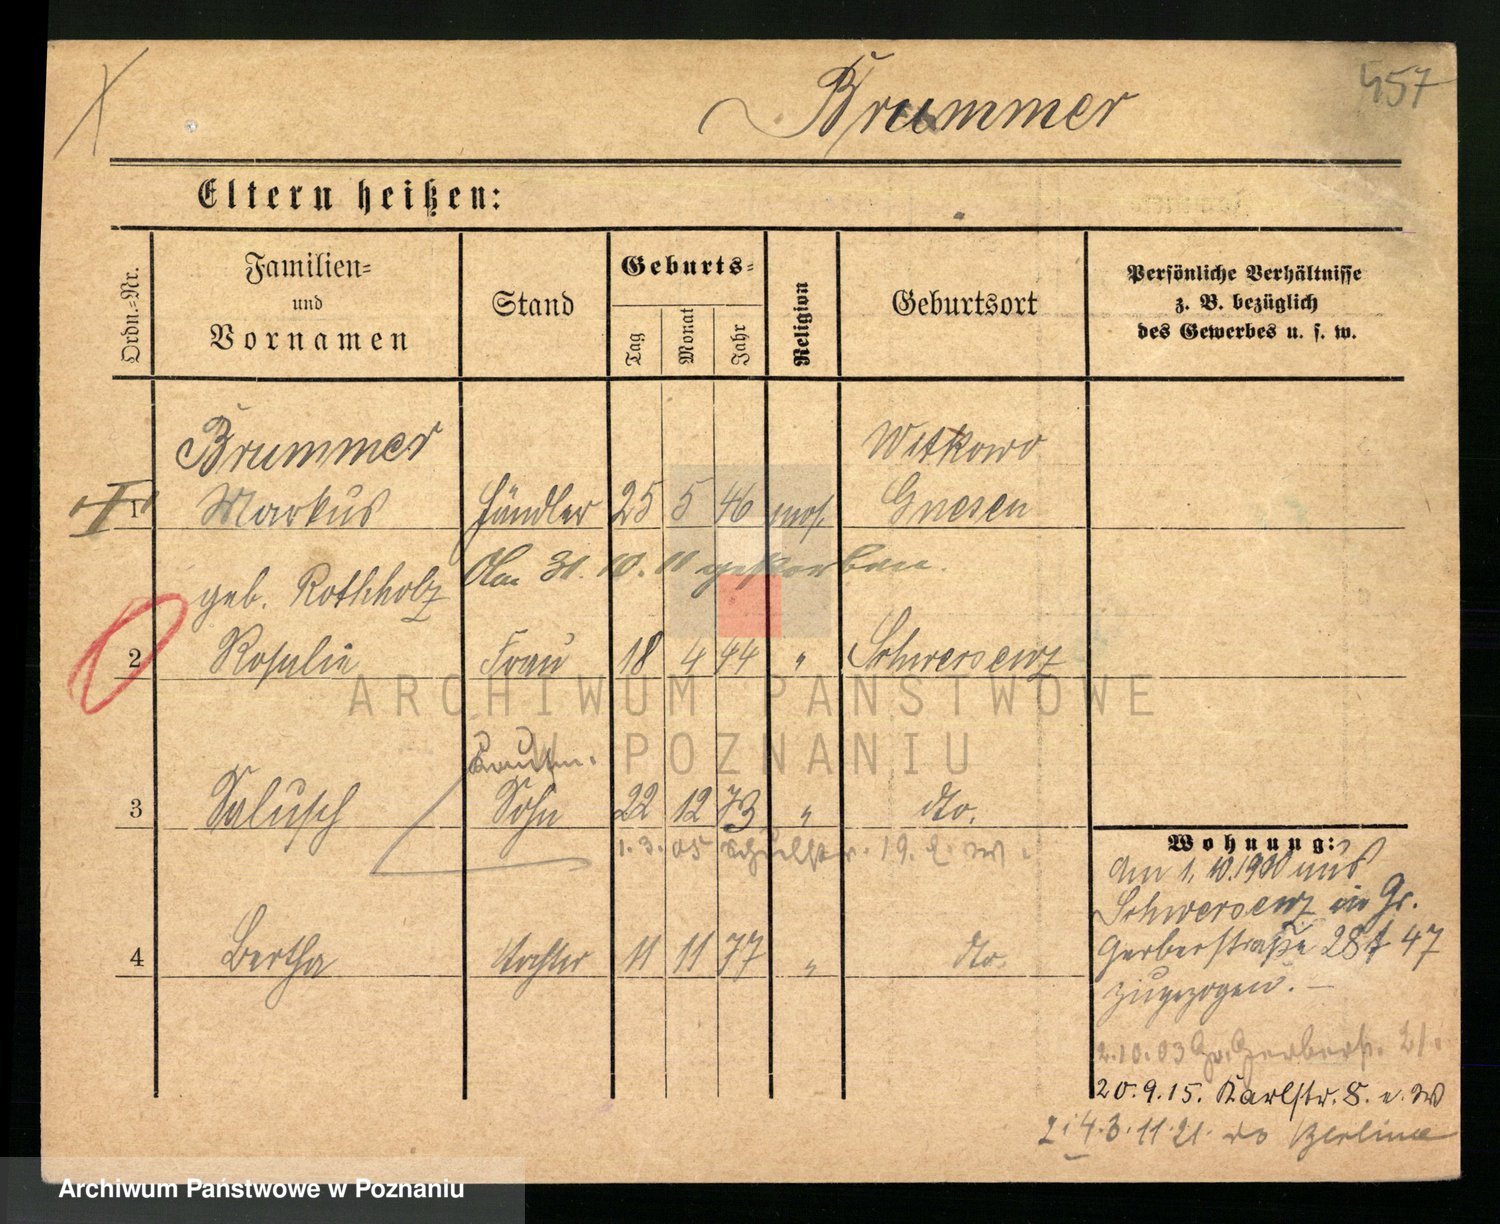 457
Brummer
Eltern heißen:
Ordn.-Nr.
Familien-
und
Vornamen
Stand
Geburts-
Tag
Monat
Jahr
Religion
Geburtsort
Persönliche Verhältnisse
z. B. bezüglich
des Gewerbes u. s. w.
Brummer
Witkowo
1 Markus Händler 25 5 46 mos. Gnesen
Am 31. 10. 11 gestorben.
geb. Rothholz
2 Rosalie Frau 18 4 44 " Schwersenz
Kaufm.
3 Salusch Sohn 22 12 73 " dto.
1. 3. 05 Schulstr. 19. e. W.
4 Bertha Tochter 11 11 77 " dto.
Wohnung:
Am 1. 10. 1900 aus
Schwersenz in Gr.
Gerberstraße 28 47
zugezogen. —
2. 10. 03 Gr. Gerberstr. 21.
20. 9. 15. Karlstr. 8. e. W
2 i 4. 3. 11. 21. Berlin
ARCHIWUM PAŃSTWOWE
W POZNANIU
Archiwum Państwowe w Poznaniu